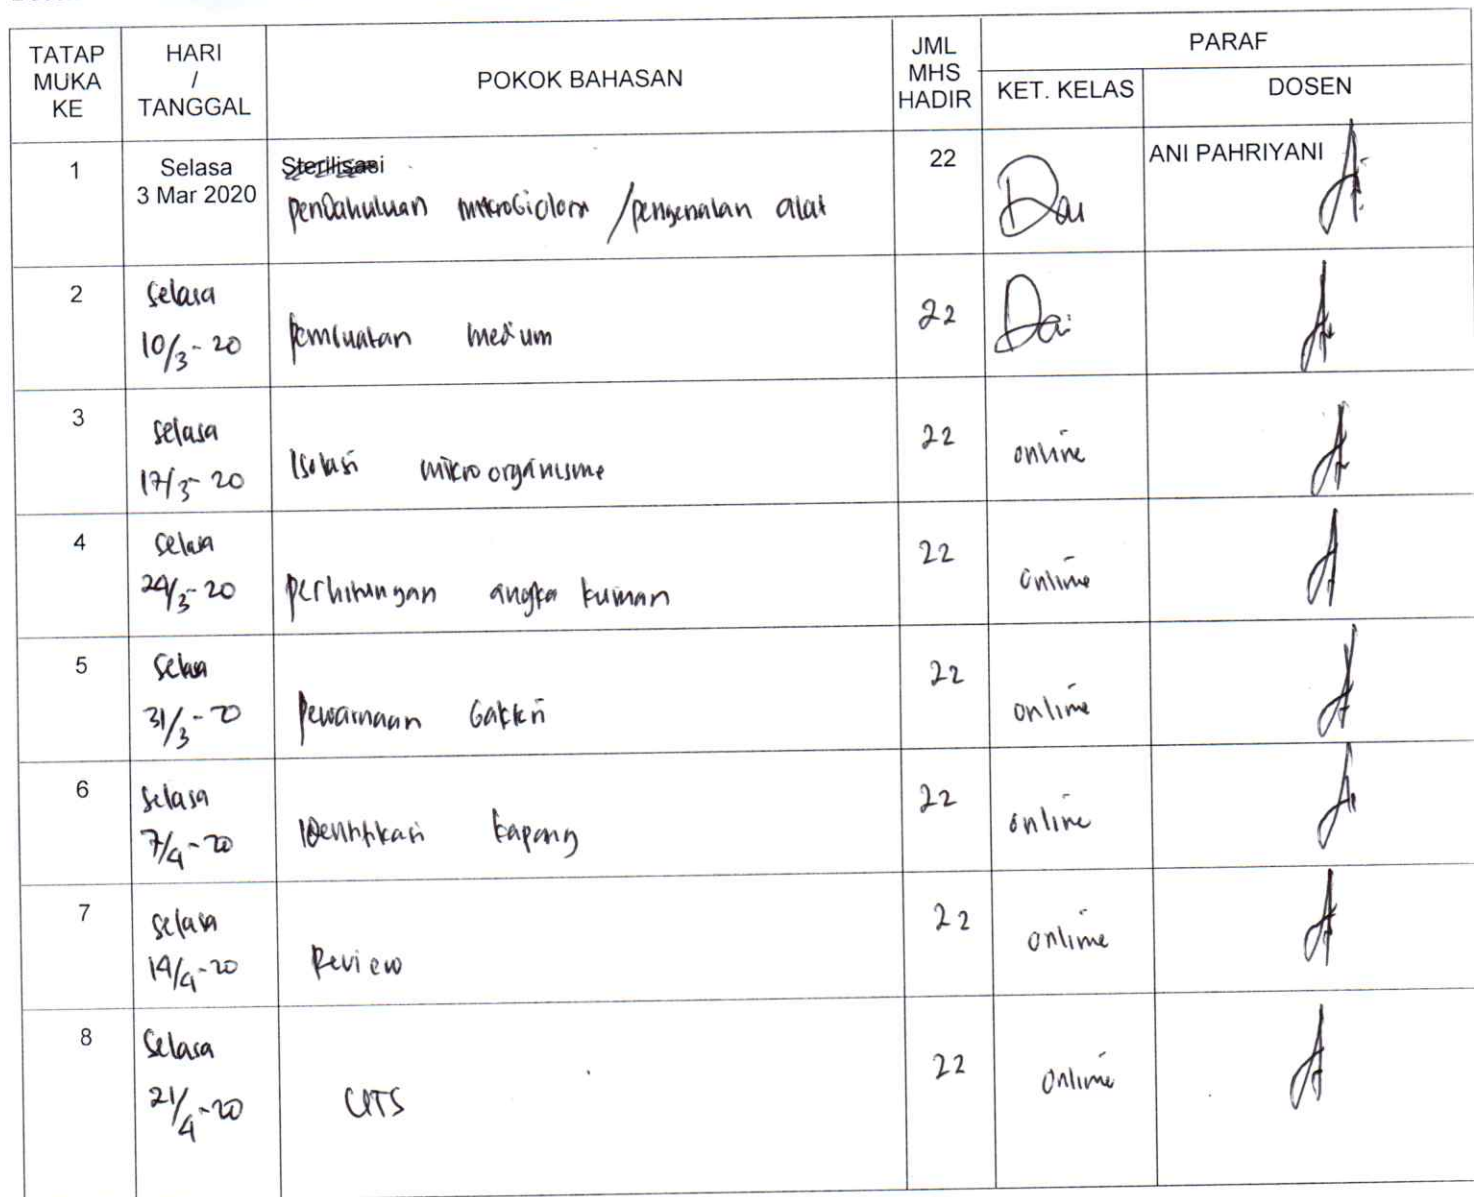 TATAP MUKA KE
HARI / TANGGAL
POKOK BAHASAN
JML MHS HADIR
PARAF
KET. KELAS
DOSEN
1
Selasa
3 Mar 2020
Sterilisasi
penDahuluan /pengenalan alat
22
ANI PAHRIYANI
2
Selasa
10/3-20
pembuatan medium
22
3
selasa
17/3-20
Isolasi mikroorganisme
22
online
4
selasa
24/3-20
perhitungan angka kuman
22
online
5
Selasa
31/3-20
pewarnaan bakteri
22
online
6
selasa
7/4-20
identifikasi kapang
22
online
7
selasa
14/4-20
Review
22
online
8
Selasa
21/4-20
UTS
22
online